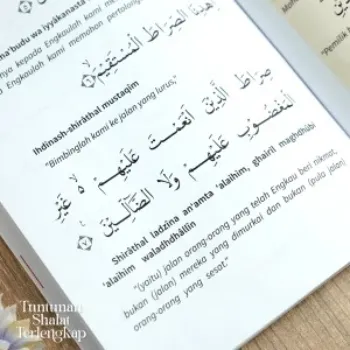 ma'budu wa iyyâkanasta
nya kepada Engkaulah kami me
a Engkaulah kami memohon pertolong
إِهْدِنَا الصِّرَاطَ الْمُسْتَقِيْمَ ۙ ٦
Ihdinash-shirâthal mustaqim
"Bimbinglah kami ke jalan yang lurus,"
صِرَاطَ الَّذِيْنَ اَنْعَمْتَ عَلَيْهِمْ ەۙ غَيْرِ
الْمَغْضُوْبِ عَلَيْهِمْ وَلَا الضَّاۤلِّيْنَ ٧
Shirâthal ladzîna an'amta 'alaihim, ghairil maghdhûbi
'alaihim waladhdhâllîn
"(yaitu) jalan orang-orang yang telah Engkau beri nikmat,
bukan (jalan) mereka yang dimurkai dan bukan (pula jalan)
orang-orang yang sesat."
"Pemilik h
Tuntunan
Shalat
Terlengkap